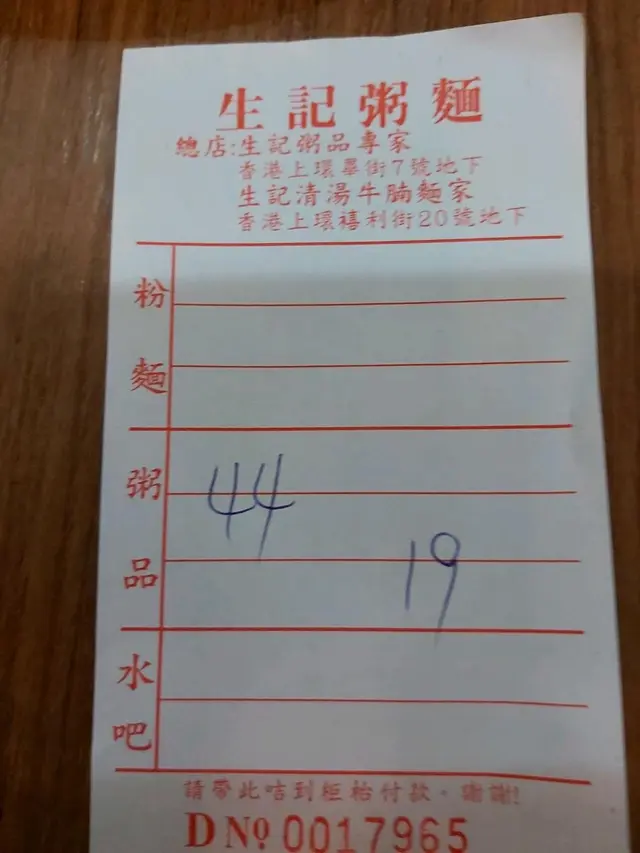 生記粥麵
總店:生記粥品專家
香港上環畢街7號地下
生記清湯牛腩麵家
香港上環禧利街20號地下
粉麵
粥品
44
19
水吧
請帶此咭到柜枱付款。謝謝!
D No 0017965